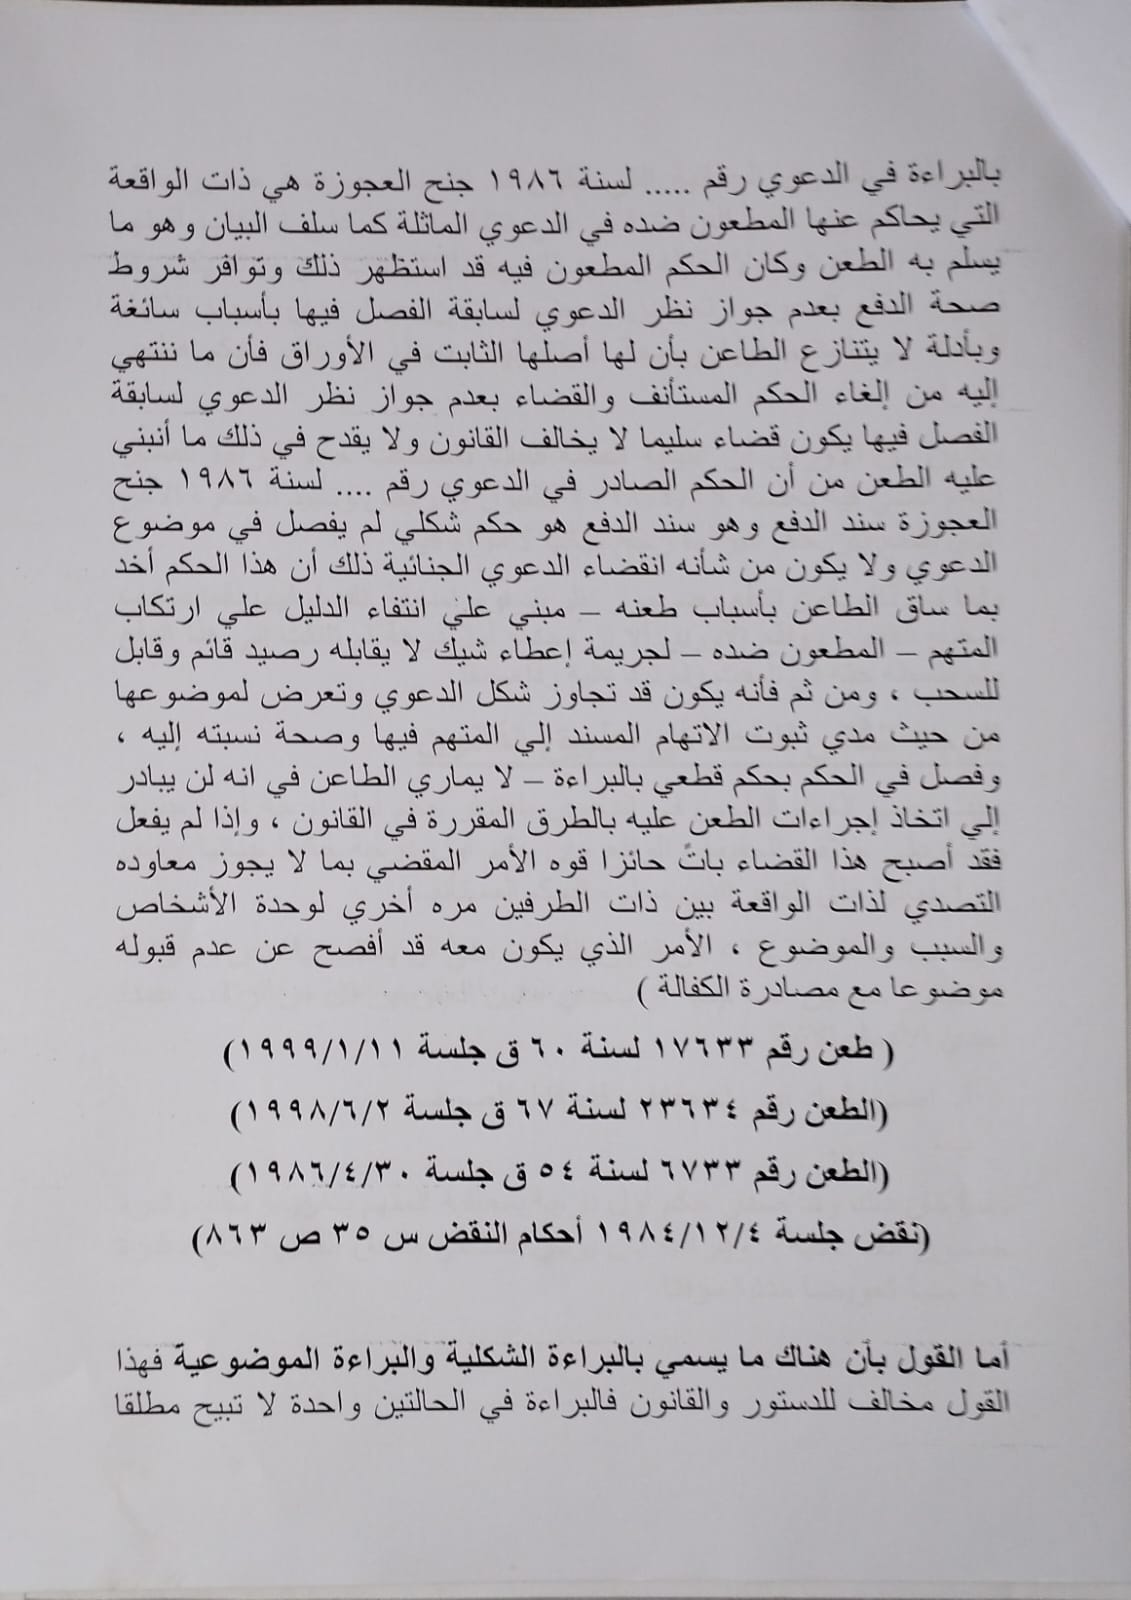 بالبراءة في الدعوي رقم ..... لسنة ١٩٨٦ جنح العجوزة هي ذات الواقعة
التي يحاكم عنها المطعون ضده في الدعوي الماثلة كما سلف البيان وهو ما
يسلم به الطعن وكان الحكم المطعون فيه قد استظهر ذلك وتوافر شروط
صحة الدفع بعدم جواز نظر الدعوي لسابقة الفصل فيها بأسباب سائغة
وبأدلة لا يتنازع الطاعن بأن لها أصلها الثابت في الأوراق فأن ما ننتهي
إليه من إلغاء الحكم المستأنف والقضاء بعدم جواز نظر الدعوي لسابقة
الفصل فيها يكون قضاء سليما لا يخالف القانون ولا يقدح في ذلك ما أنبني
عليه الطعن من أن الحكم الصادر في الدعوي رقم .... لسنة ١٩٨٦ جنح
العجوزة سند الدفع وهو سند الدفع هو حكم شكلي لم يفصل في موضوع
الدعوي ولا يكون من شأنه انقضاء الدعوي الجنائية ذلك أن هذا الحكم أخد
بما ساق الطاعن بأسباب طعنه – مبني علي انتفاء الدليل علي ارتكاب
المتهم – المطعون ضده – لجريمة إعطاء شيك لا يقابله رصيد قائم وقابل
للسحب ، ومن ثم فأنه يكون قد تجاوز شكل الدعوي وتعرض لموضوعها
من حيث مدي ثبوت الاتهام المسند إلي المتهم فيها وصحة نسبته إليه ،
وفصل في الحكم بحكم قطعي بالبراءة – لا يماري الطاعن في انه لن يبادر
إلي اتخاذ إجراءات الطعن عليه بالطرق المقررة في القانون ، وإذا لم يفعل
فقد أصبح هذا القضاء باتً حائزا قوه الأمر المقضي بما لا يجوز معاوده
التصدي لذات الواقعة بين ذات الطرفين مره أخري لوحدة الأشخاص
والسبب والموضوع ، الأمر الذي يكون معه قد أفصح عن عدم قبوله
موضوعا مع مصادرة الكفالة )
( طعن رقم ١٧٦٣٣ لسنة ٦٠ ق جلسة ١٩٩٩/١/١١)
(الطعن رقم ٢٣٦٣٤ لسنة ٦٧ ق جلسة ١٩٩٨/٦/٢)
(الطعن رقم ٦٧٣٣ لسنة ٥٤ ق جلسة ١٩٨٦/٤/٣٠)
(نقض جلسة ١٩٨٤/١٢/٤ أحكام النقض س ٣٥ ص ٨٦٣)
أما القول بأن هناك ما يسمي بالبراءة الشكلية والبراءة الموضوعية فهذا
القول مخالف للدستور والقانون فالبراءة في الحالتين واحدة لا تبيح مطلقا